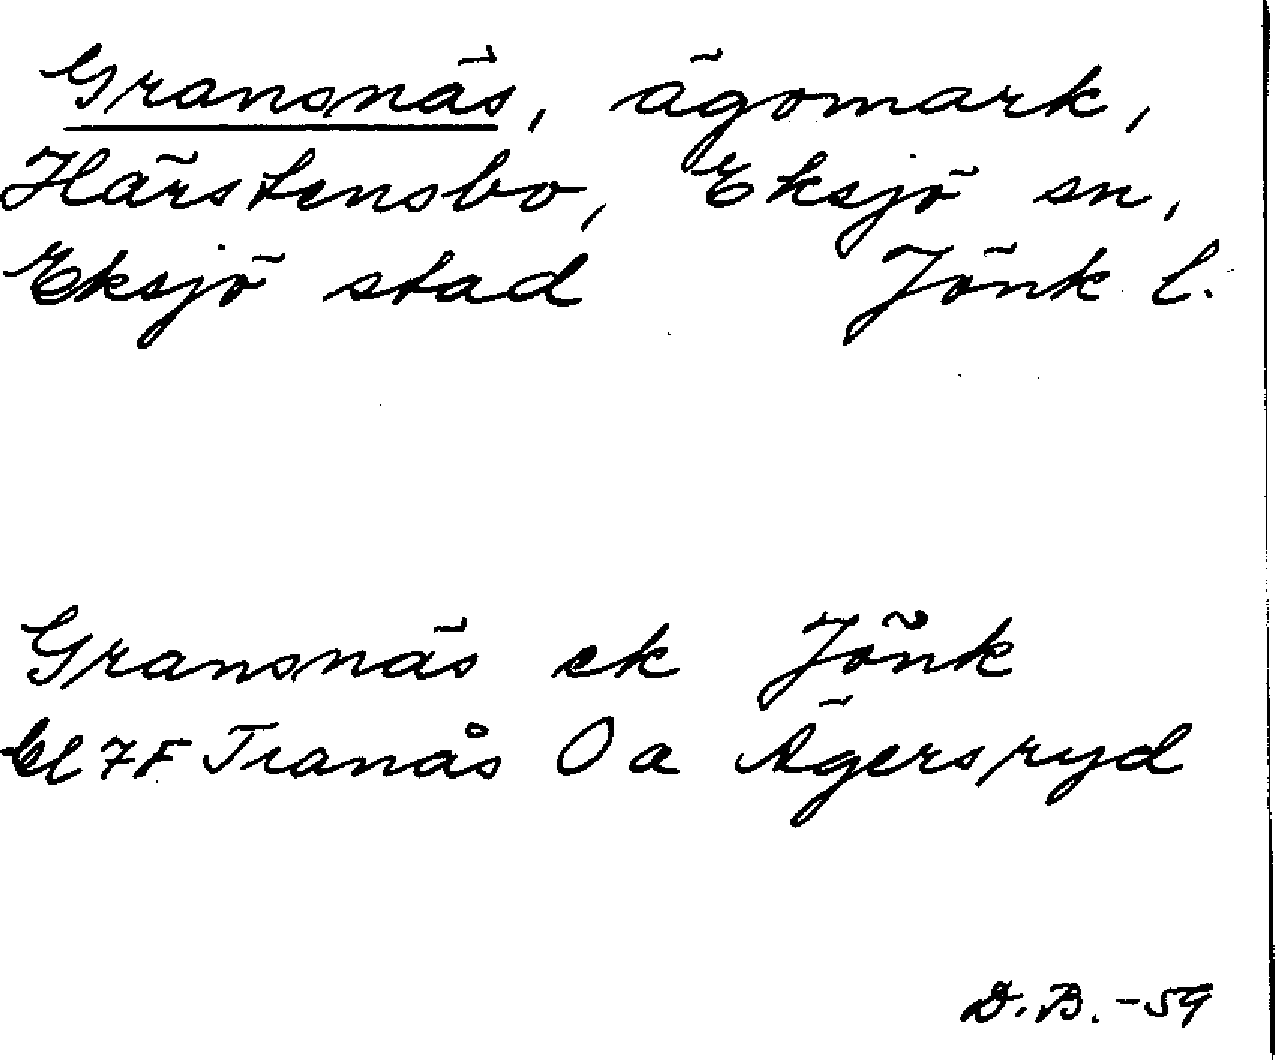 Gransnäs, ägomark,
Härstensbo, Eksjö sn,
Eksjö stad Jönk l.
Gransnäs ek Jönk
7F Tranås O a Ägersryd
D.B. -59